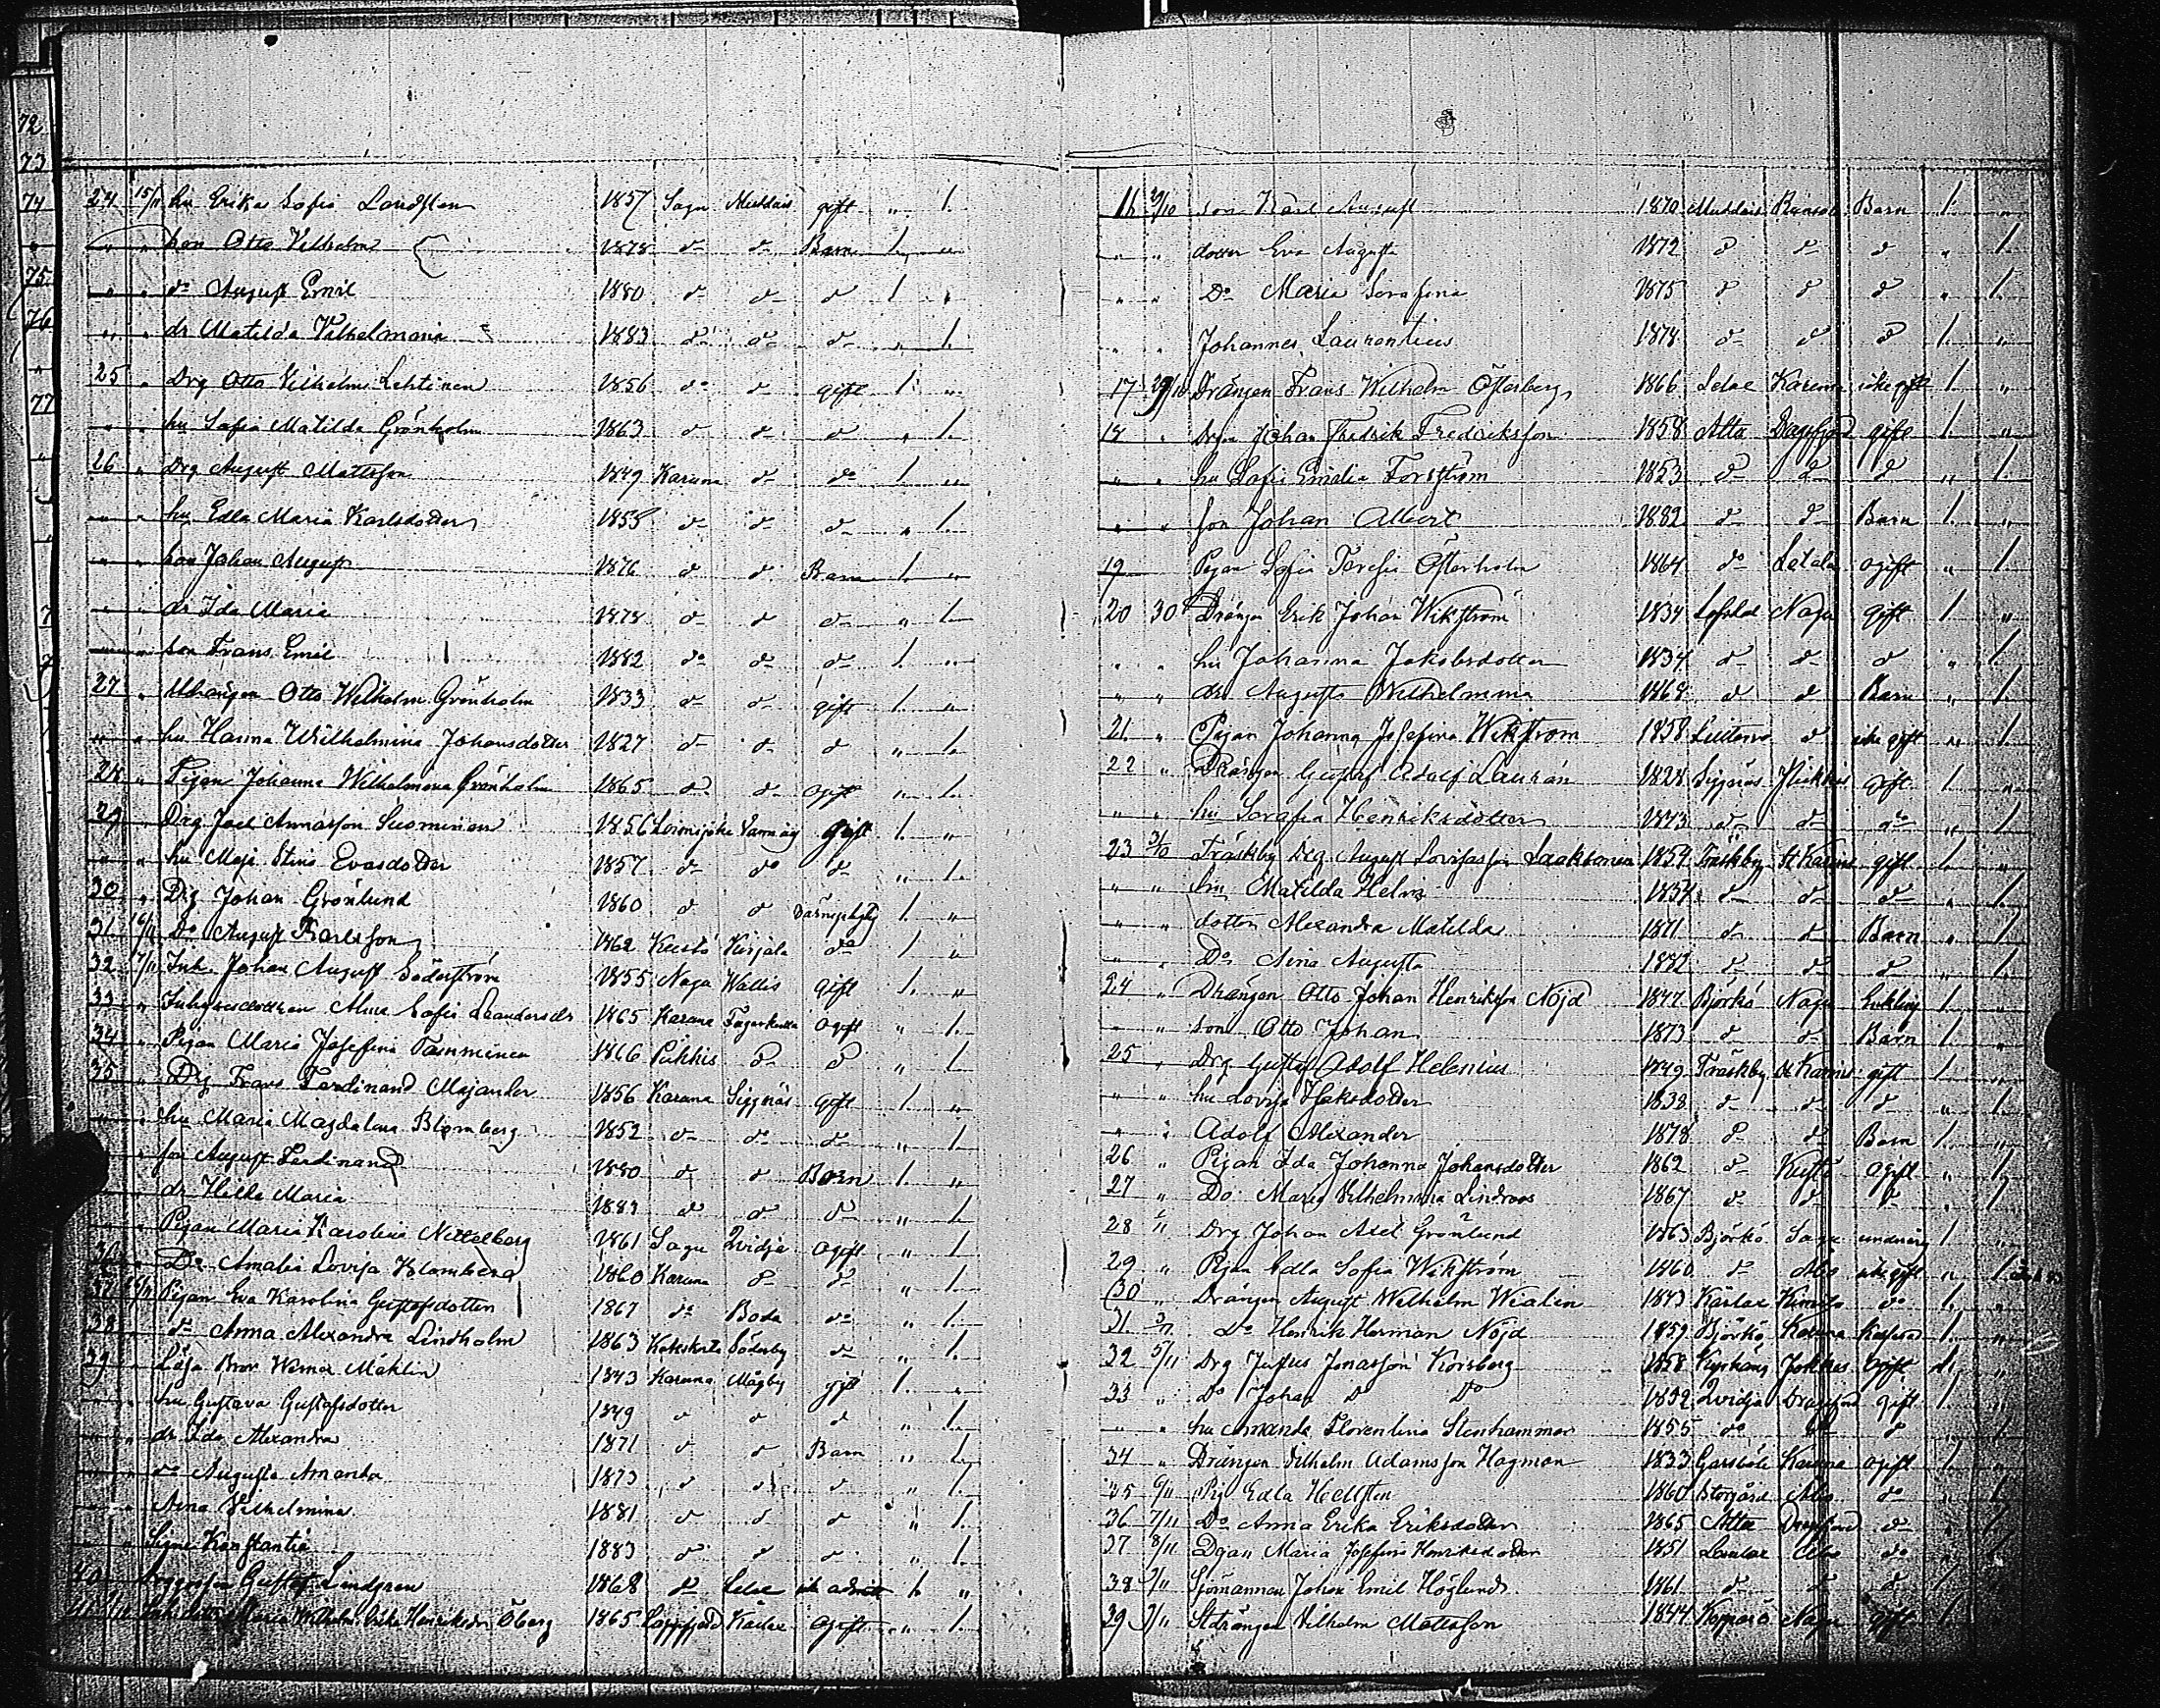 72
73
74
75
76
77
24 15/11 hu Erika Sofia Landsten 1857 Sagu Muddais gift " 1.
" " son Otto Vilhelm 1878 d- d- Barn 1. "
" " do August Emil 1880 d- d- d 1 "
" " dr Matilda Vilhelmina 1883 d- d- d- " 1.
25 " Drg Otto Vilhelm Lehtinen 1856 do d gift 1. "
" " hu Sofia Matilda Grönholm 1863 d d- d " 1.
26 " Drg August Mattsson 1849 Karuna d- do 1 "
" " hu Edla Maria Karlsdotter 1855 d- d d- " 1.
" " son Johan August 1876 d d Barn 1. "
" " dr Ida Maria 1878 d d d- " 1
" " son Frans Emil 1882 do d- d- 1. "
27 " Otto Wilhelm Grönholm 1833 d- d- gift 1. "
" " hu Hanna Wilhelmina Johansdotter 1827 d- d- d " 1.
28 " Pigan Johanna Wilhelmina Grönholm 1865 d d- ogift " 1.
29 " Drg Joel Annasson Suominen 1856 gift 1. "
" " hu Maja Stina Evasdotter 1857 d- do d- " 1.
30 " Drg Johan Grönlund 1860 d d 1. "
31 16/11 Do August Karlsson 1862 Kustö Kirjala do 1 "
32 17/11 Inh Johan August Söderström 1855 Nagu Wallis gift 1. "
33 " Alma Sofia 1865 Karuna ogift " 1.
34 " Pigan Maria Josefina Tamminen 1866 Pikkis d- d " 1
35 " Drg Frans Ferdinand Majander 1856 Karuna Siggnäs gift 1. "
" " hu Maria Magdalena Blomberg 1852 d- d- d- " 1
" " son August Ferdinand 1880 d d Barn 1 "
" dr Hilda Maria 1883 d d d " 1.
" " Pigan Maria Karolina Nettelberg 1861 Sagu Qvidja ogift " 1.
36 " Do Amalia Lovisa Blomberg 1860 Karuna d- d- " 1.
37 Pigan Eva Karolina Gustafsdotter 1867 do Boda do " 1.
38 do Anna Alexandra Lindholm 1863 Söderby d- " 1.
39 Werner Mäklin 1843 Karuna Mågby gift 1. "
" hu Gustava Gustafsdotter 1849 d d d " 1.
" " dr Ida Alexandra 1871 d d Barn " 1.
" " do Augusta Amanda 1873 d d d " 1.
" " Aina Vilhelmina 1881 d d d " 1.
" " Signe Konstantia 1883 d d d " 1.
40 Gustaf Lindgren 1868 d- 1. "
41 Maria Öberg 1865 ogift " 1.
16 29/10 son Karl August 1870 Muddais Barn 1. "
" " dotter Eva Augusta 1872 d d- d " 1.
" " Do Maria Serafina 1875 d d d " 1.
" " Johannes Laurentius 1878 d- d d 1. "
17 29/10 Drängen Frans Wilhelm Österberg 1866 Karuna icke gift 1. "
18 " Johan Fredrik Fredriksson 1858 Attu Dragsfjerd gift 1. "
" " hu Sofia Emilia Forsström 1853 d- d- d " 1.
" " son Johan Albert 1882 d- d- Barn 1. "
19 Pigan Sofia Teresia Österholm 1864 do Letala ogift " 1.
20 30 Drängen Erik Johan Wikström 1834 Nagu gift 1 "
" " hu Johanna Jakobsdotter 1834 d- d- d " 1.
" " dr Augusta Wilhelmina 1868 d d Barn " 1.
21 " Pigan Johanna Josefina Wikström 1858 d icke gift " 1.
22 " Drängen Gustaf Adolf Laurén 1828 Siggnäs gift 1 "
" " hu Serafia Henriksdotter d- d- do " 1
23 31/10 Träskby Drg August Lovisasson Laaksonen 1854 Träskby St Karins gift 1. "
" " hu Matilda Helin 1834 d- d- d- " 1
" " dotter Alexandra Matilda 1871 d- d Barn " 1.
" " Do Aina Augusta d- d- d " 1.
24 " Drängen Otto Johan Henriksson Nöjd 1847 Björkö Nagu Enkling 1. "
" " son Otto Johan 1873 d d- Barn 1 "
25 " Drg Gustaf Adolf Helenius 1849 Träskby St Karins gift 1. "
" " hu Lovisa Isaksdotter 1838 d- d- d " 1.
" " Adolf Alexander 1878 d- d- Barn 1. "
26 " Pigan Ida Johanna Johansdotter 1862 d- Kustö ogift " 1.
27 " Do Maria Vilhelmina Lindroos 1867 d- d- d- " 1
28 Drg Johan Axel Grönlund 1863 Björkö Sagu 1 "
29 " Pigan Edla Sofia Wikström 1860 d- Åbo icke gift " 1.
30 " Drängen August Wilhelm Wialin 1843 Kärlax Kimito do 1. "
31 3/11 Do Henrik Herman Nöjd 1859 Björkö Karuna 1. "
32 5/11 Drg Justus Jonasson Korsberg 1858 ogift 1. "
33 " Do Johan Do Do 1852 Qvidja Dragsfjerd gift 1. "
" " hu Amanda Florentina Stenhammar 1855 do d " 1.
34 " Drängen Vilhelm Adamsson Hagman 1833 Karuna ogift 1. "
35 6/11 Pig Edla Hellsten 1860 Storgård Åbo do " 1.
36 7/11 Do Anna Erika Eriksdotter 1865 Attu Dragsfjerd d- " 1.
37 8/11 Maria Josefina Henriksdotter 1851 Åbo do " 1
38 Sjömannen Johan Emil Höglund 1861 d- d d 1
39 Vilhelm Mattsson 1844 Kopparö Nagu gift 1